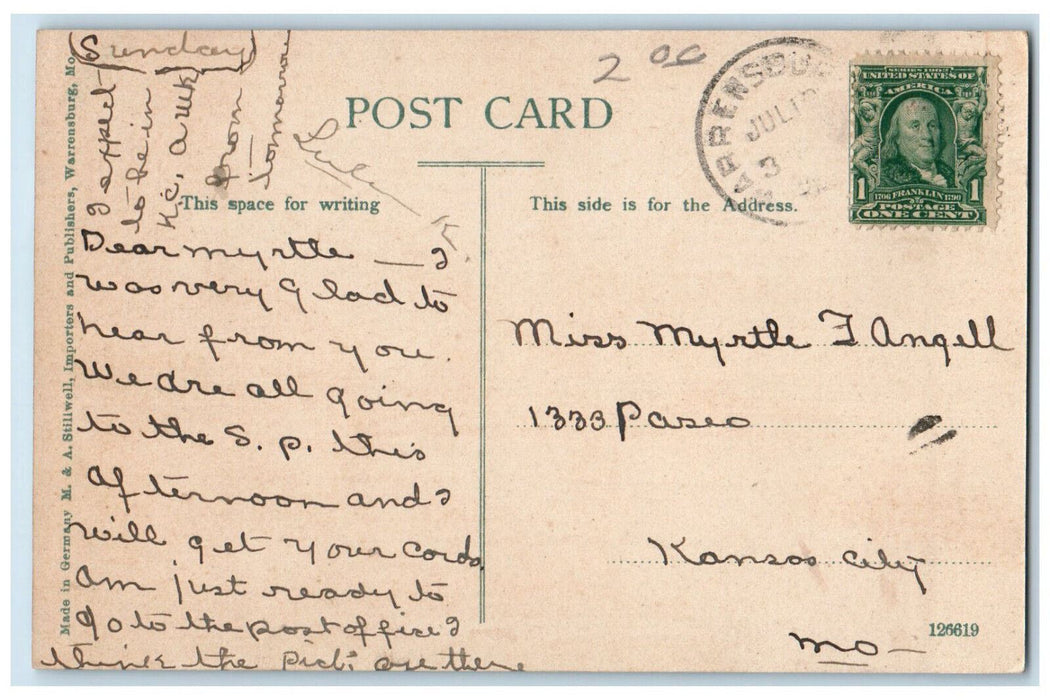 Sunday
I expect
to be in
K.C, a wk
from
tomorrow
2 00
POST CARD
WARRENSBURG
JUL
3
SERIES 1902
UNITED STATES OF
AMERICA
1
1706 FRANKLIN 1790
1
POSTAGE
ONE CENT
This space for writing
This side is for the Address.
Dear myrtle — I
was very glad to
hear from you.
We are all going
to the S. p. this
afternoon and I
will get your cards
am just ready to
go to the post office I
think the Pict. are there
Miss Myrtle F Angell
1333 Paseo
Kansas City
Mo —
126619
Made in Germany M. & A. Stillwell, Importers and Publishers, Warrensburg, Mo.